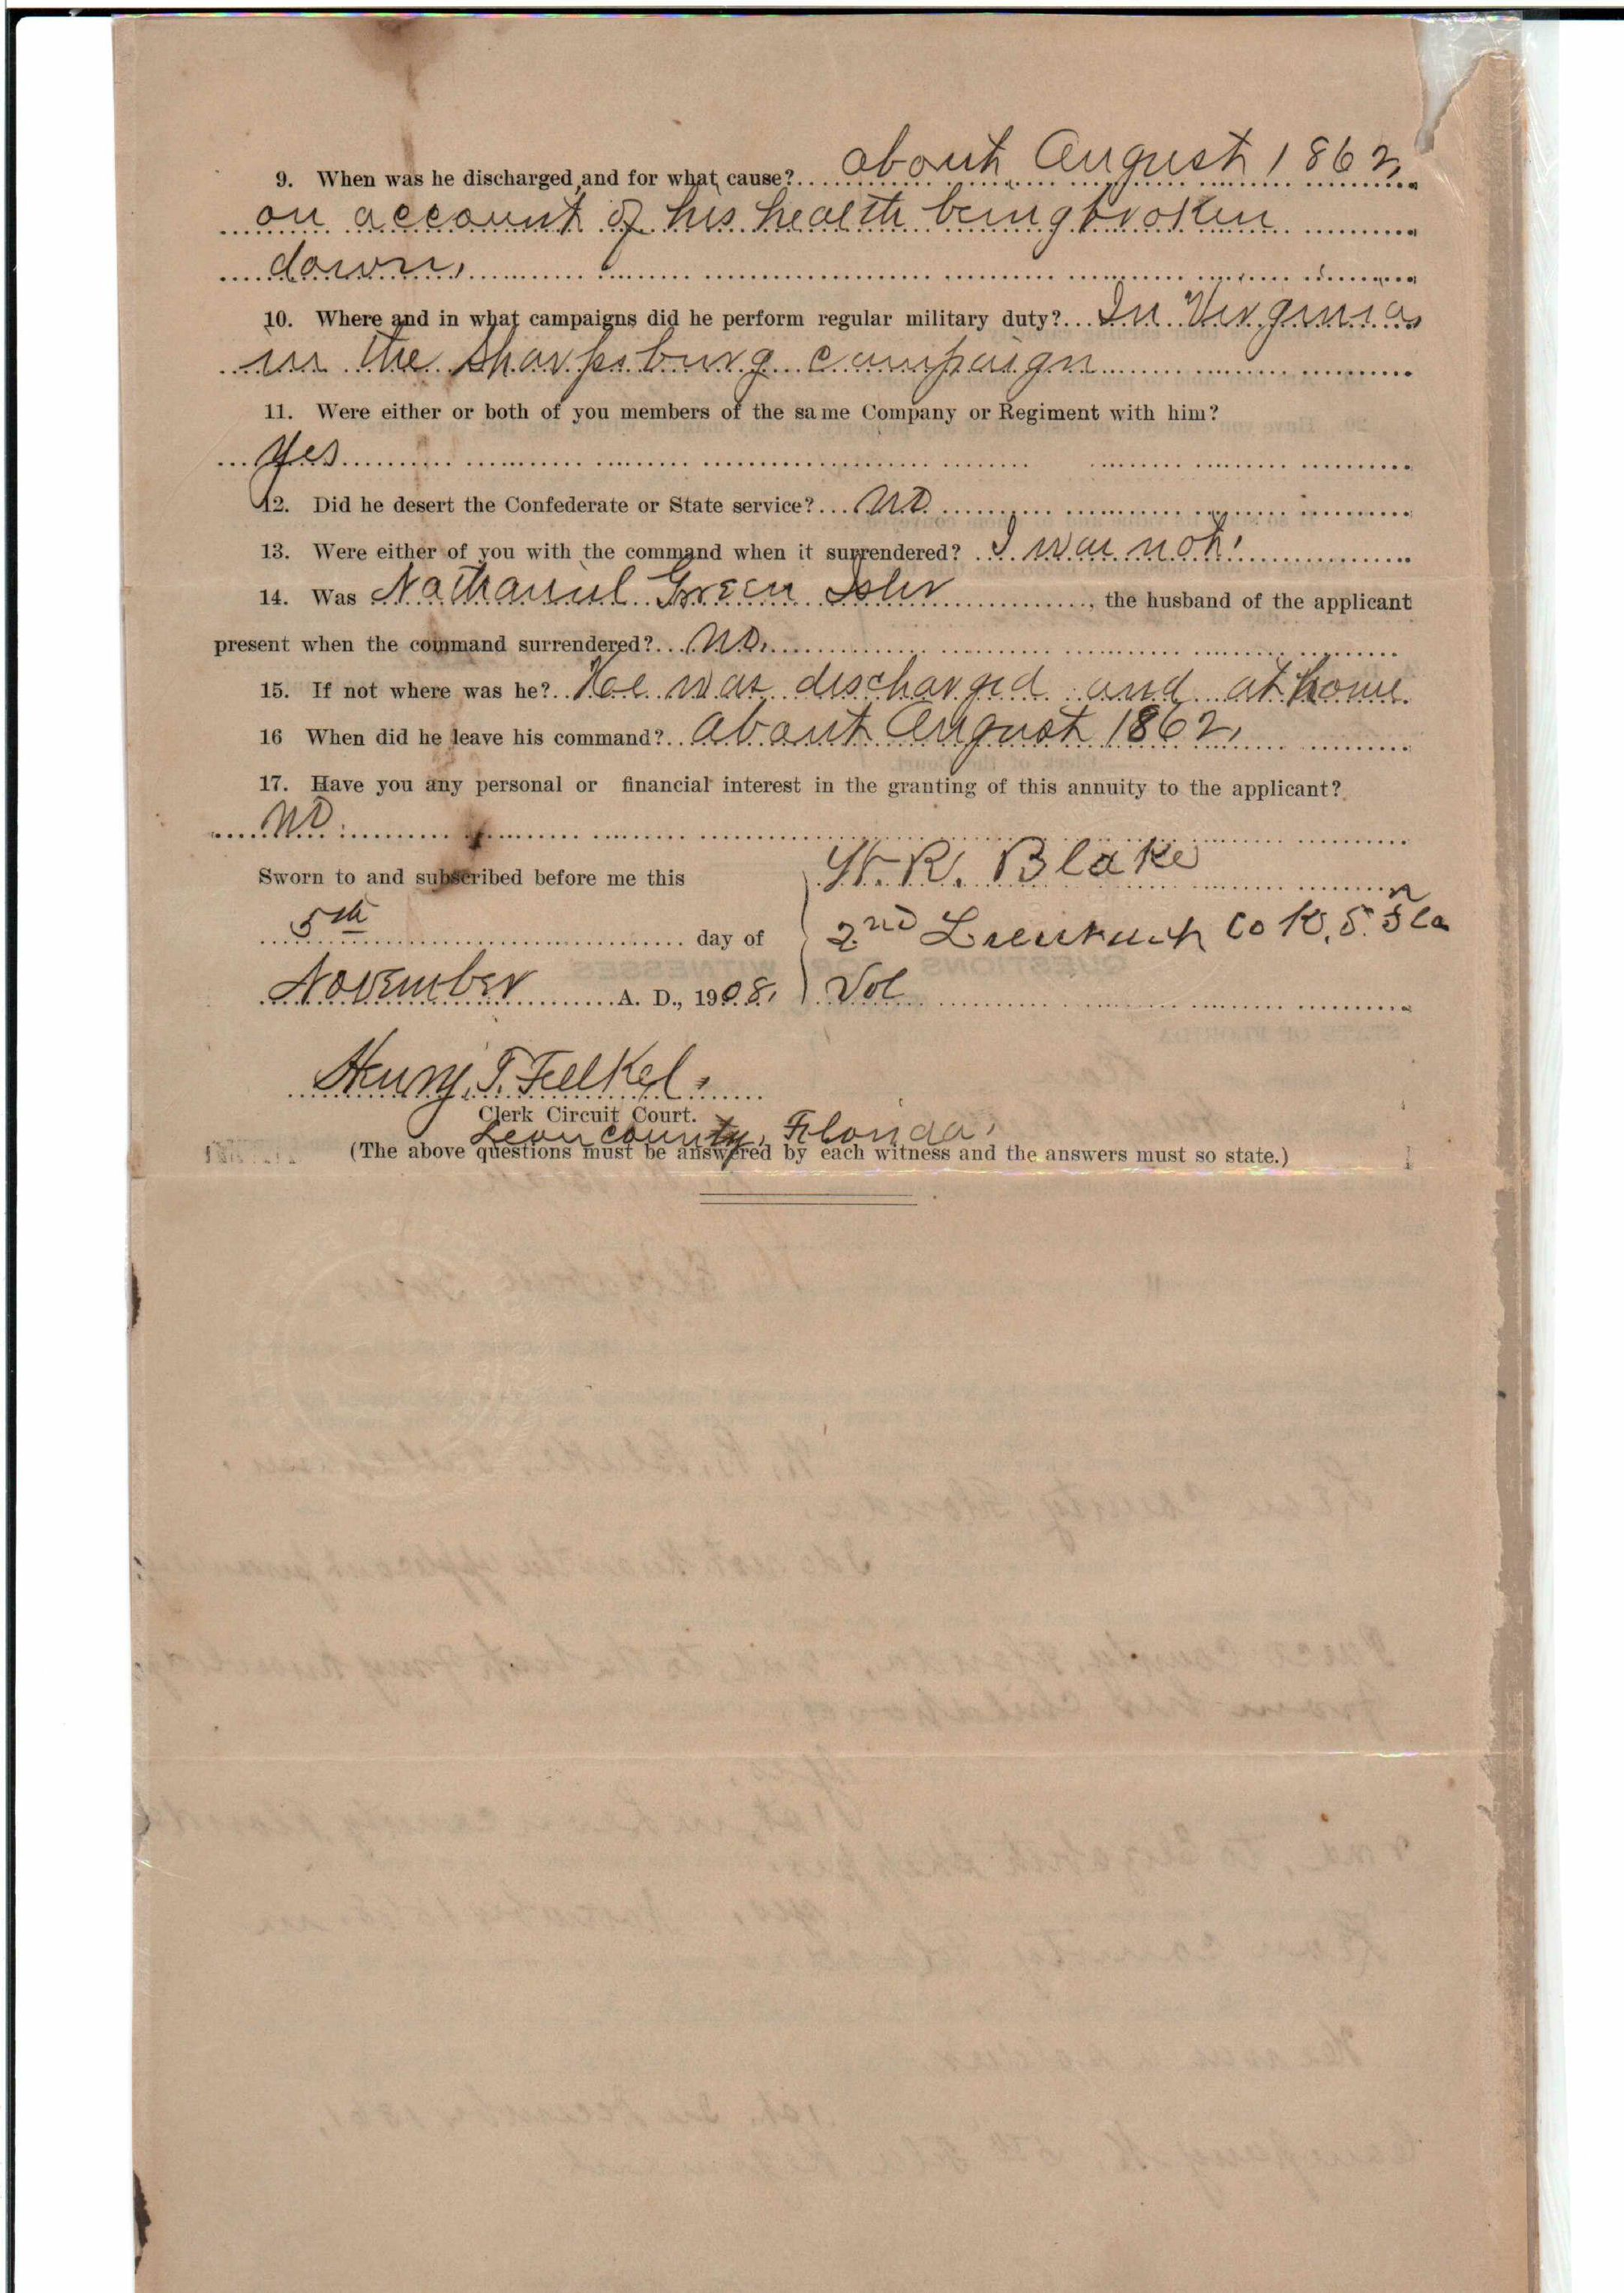 9. When was he discharged, and for what cause? about August 1862,
on account of his health being broken
down,
10. Where and in what campaigns did he perform regular military duty? In Virginia,
in the Sharpsburg campaign
11. Were either or both of you members of the same Company or Regiment with him?
Yes
12. Did he desert the Confederate or State service? No
13. Were either of you with the command when it surrendered? I was not.
14. Was Nathaniel Green Isler, the husband of the applicant
present when the command surrendered? No.
15. If not where was he? He was discharged and at home.
16 When did he leave his command? About August 1862,
17. Have you any personal or financial interest in the granting of this annuity to the applicant?
No
Sworn to and subscribed before me this
5th day of
November A. D., 1908.
W. R. Blake
2nd Lieutenant Co K, 5. Fla
Vol
Henry T. Felkel.
Clerk Circuit Court.
Leon County, Florida.
(The above questions must be answered by each witness and the answers must so state.)